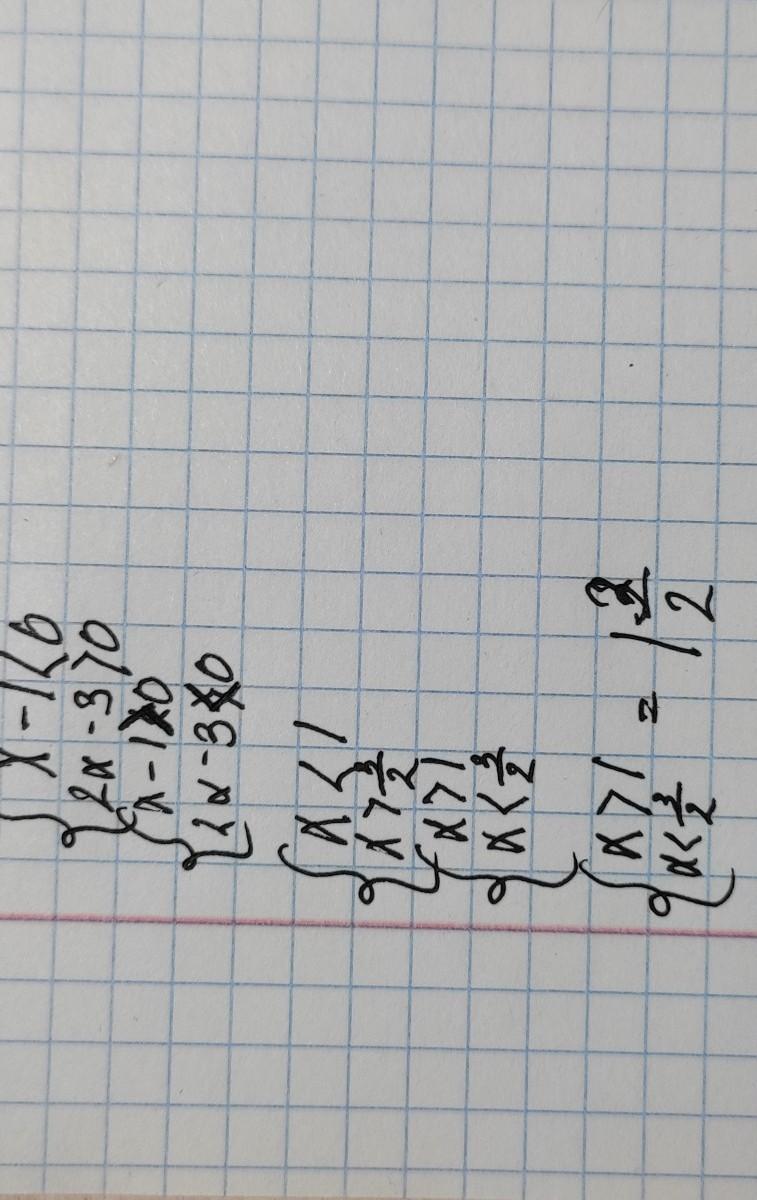 { x - 1 < 0
{ 2x - 3 > 0
{ x - 1 > 0
{ 2x - 3 < 0
{ x < 1
{ x > 3/2
{ x > 1
{ x < 3/2
{ x > 1 = 1
{ x < 3/2 1 2